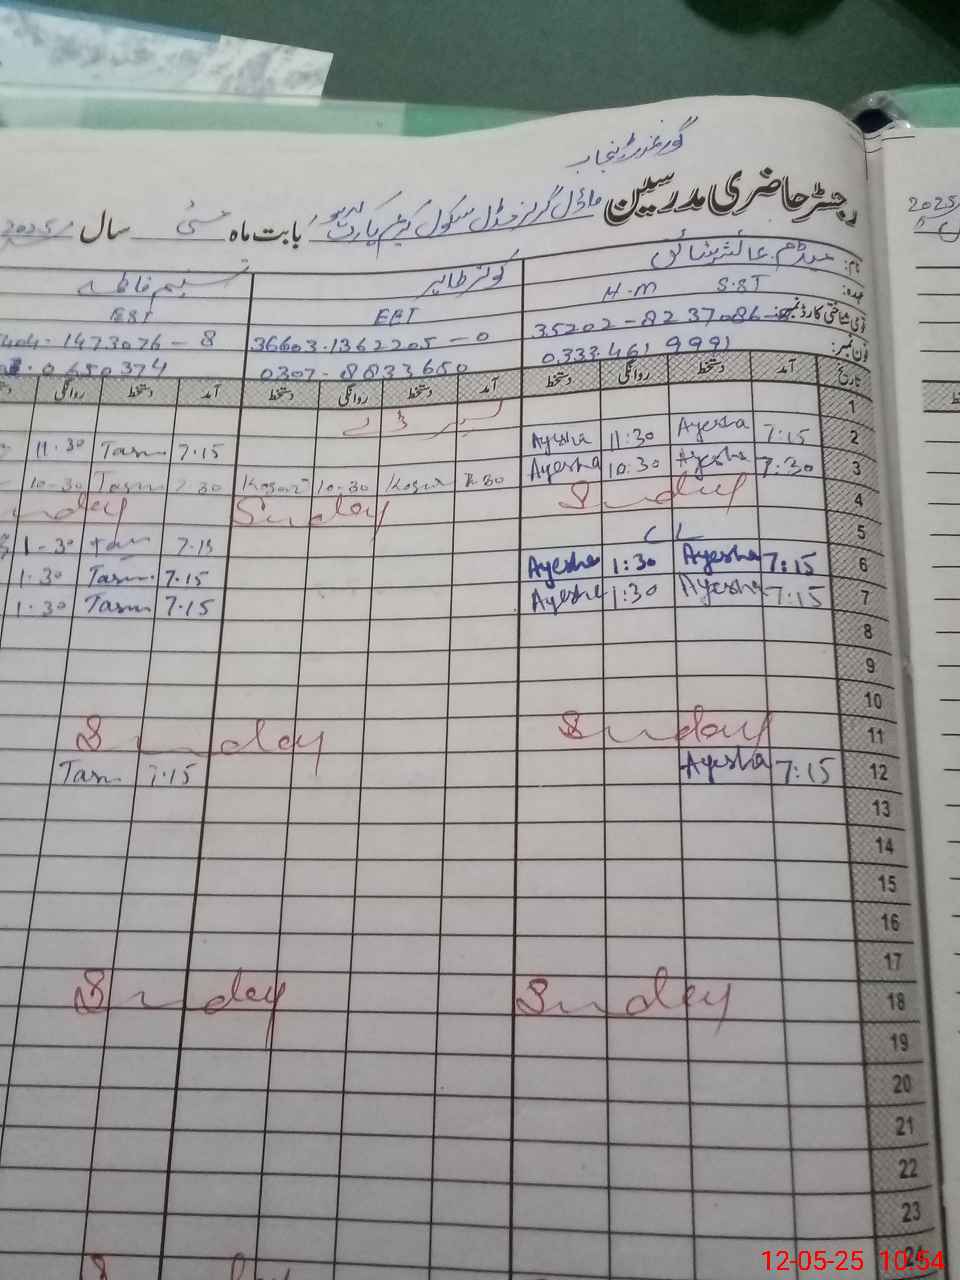 گورنمنٹ پنجاب
رجسٹر حاضری مدرسین ماڈل گرلز مڈل سکول بابت ماہ مئی سال 2025
نام: میڈم عائشہ کوثر طاہر تسنیم فاطمہ
عہدہ: S.ST H.M EST EST
قومی شناختی کارڈ نمبر: 35202-8237086- 36603-1362205-0 404-1473076-8
فون نمبر: 0333-461 9991 0307-8833650 0650374
تاریخ آمد دستخط روانگی دستخط آمد دستخط روانگی دستخط آمد دستخط روانگی
1 لیبر ڈے
2 7:15 Ayesha 11:30 Ayesha 7.15 Tasn 11.30
3 7:30 Ayesha 10:30 Ayesha 7.30 Kosar 10-30 Kosar 7.30 Tasn 10-30
4 Sunday Sunday nday
5 CL 7.15 Tasn 1-30
6 7:15 Ayesha 1:30 Ayesha 7.15 Tasn 1.30
7 7:15 Ayesha 1:30 Ayesha 7.15 Tasn 1.30
8
9
10
11 Sunday Sunday
12 7:15 Ayesha 7.15 Tasn
13
14
15
16
17
18 Sunday Sunday
19
20
21
22
23
24
2025
12-05-25 10:54